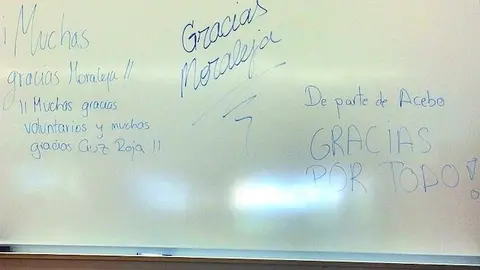 ¡Muchas
gracias Moraleja!!
¡¡ Muchas gracias
voluntarios y muchas
gracias Cruz Roja !!
Gracias
Moraleja
De parte de Acebo
GRACIAS
POR TODO!